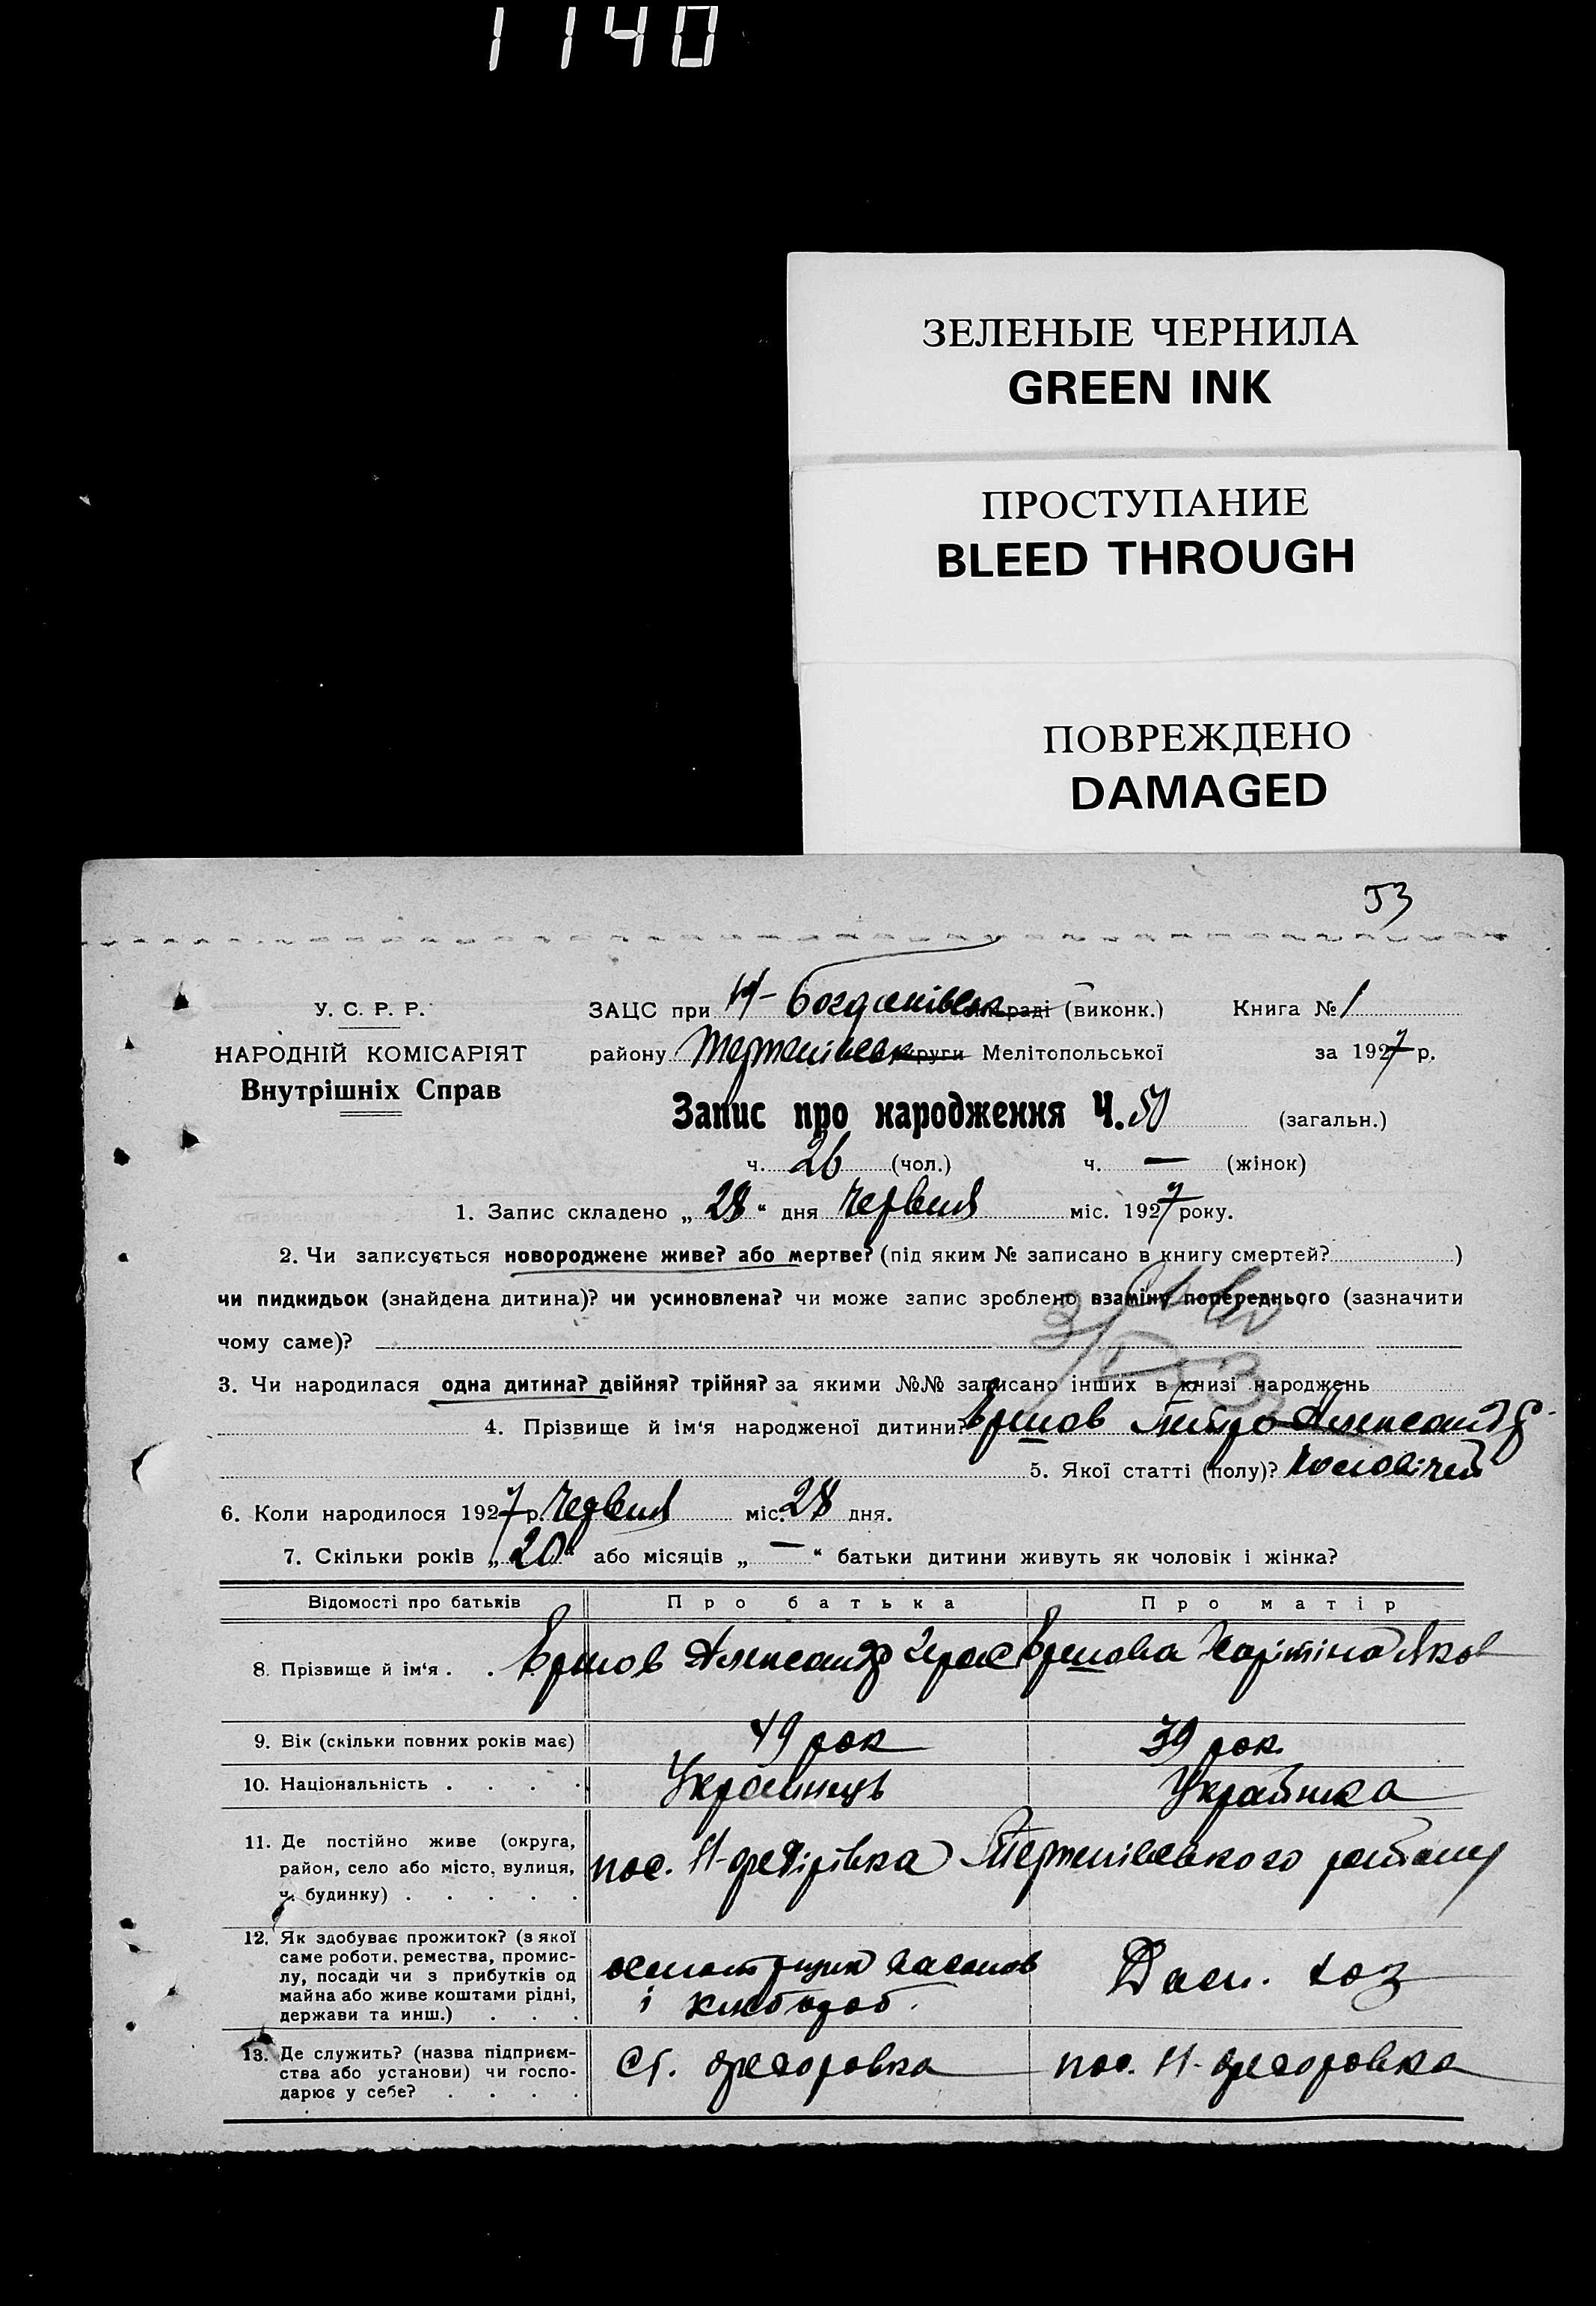 1140
ЗЕЛЕНЫЕ ЧЕРНИЛА
GREEN INK
ПРОСТУПАНИЕ
BLEED THROUGH
ПОВРЕЖДЕНО
DAMAGED
53
У. С. Р. Р.
НАРОДНІЙ КОМІСАРІЯТ
Внутрішніх Справ
ЗАЦС при Н-Богданівськ раді (виконк.) Книга № 1
району Терпеніевск округи Мелітопольської за 1927 р.
Запис про народження Ч. 50 (загальн.)
ч. 26 (чол.) ч. — (жінок)
1. Запис складено „28“ дня Червня міс. 1927 року.
2. Чи записується новороджене живе? або мертве? (під яким № записано в книгу смертей? )
чи пидкидьок (знайдена дитина)? чи усиновлена? чи може запис зроблено взаміну попереднього (зазначити
чому саме)?
3. Чи народилася одна дитина? двійня? трійня? за якими №№ записано інших в книзі народжень
4. Прізвище й ім‘я народженої дитини? Ершов Петро Александр
5. Якої статті (полу)? Чоловічей
6. Коли народилося 1927 р. Червня міс. 28 дня.
7. Скільки років „20“ або місяців „—“ батьки дитини живуть як чоловік і жінка?
Відомості про батьків Про батька Про матір
8. Прізвище й ім‘я . . Ершов Александр Ершова Яков
9. Вік (скільки повних років має) 49 рок 39 рок
10. Національність . . . . Українець Українка
11. Де постійно живе (округа,
район, село або місто, вулиця,
ч. будинку) . . . . .
пос. Н-Федірівка Терпеніевского району
12. Як здобуває прожиток? (з якої
саме роботи, ремества, промис-
лу, посади чи з прибутків од
майна або живе коштами рідні,
держави та инш.) . . .
осмотрщик вагонов
і хлібороб.
Дом. хоз
13. Де служить? (назва підприєм-
ства або установи) чи госпо-
дарює у себе? . . . .
Ст. Федоровка
пос. Н-Федоровка